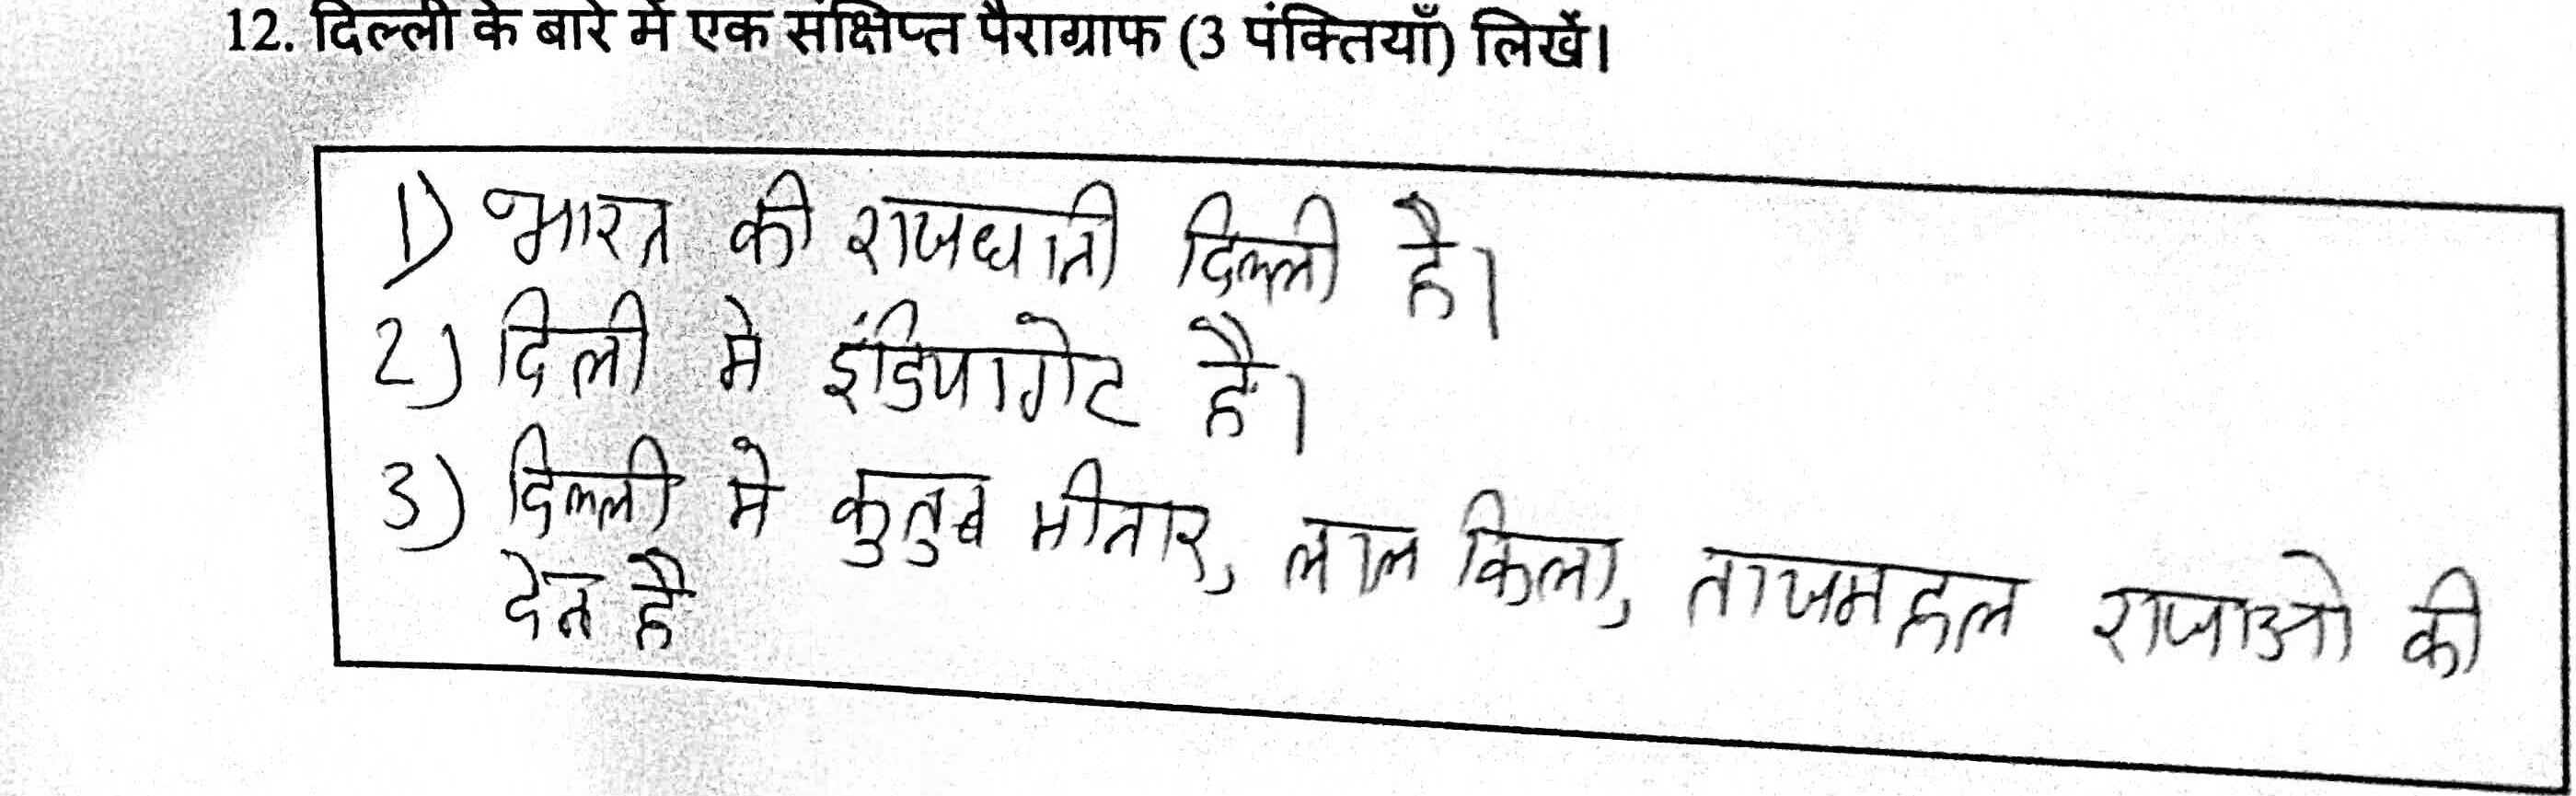 12. दिल्ली के बारे में एक संक्षिप्त पैराग्राफ (3 पंक्तियाँ) लिखें।
1) भारत की राजधानी दिल्ली है।
2) दिली मे इंडियागेट है।
3) दिल्ली मे कुतुब मीनार, लाल किला, ताजमहल राजाओ की
देन है